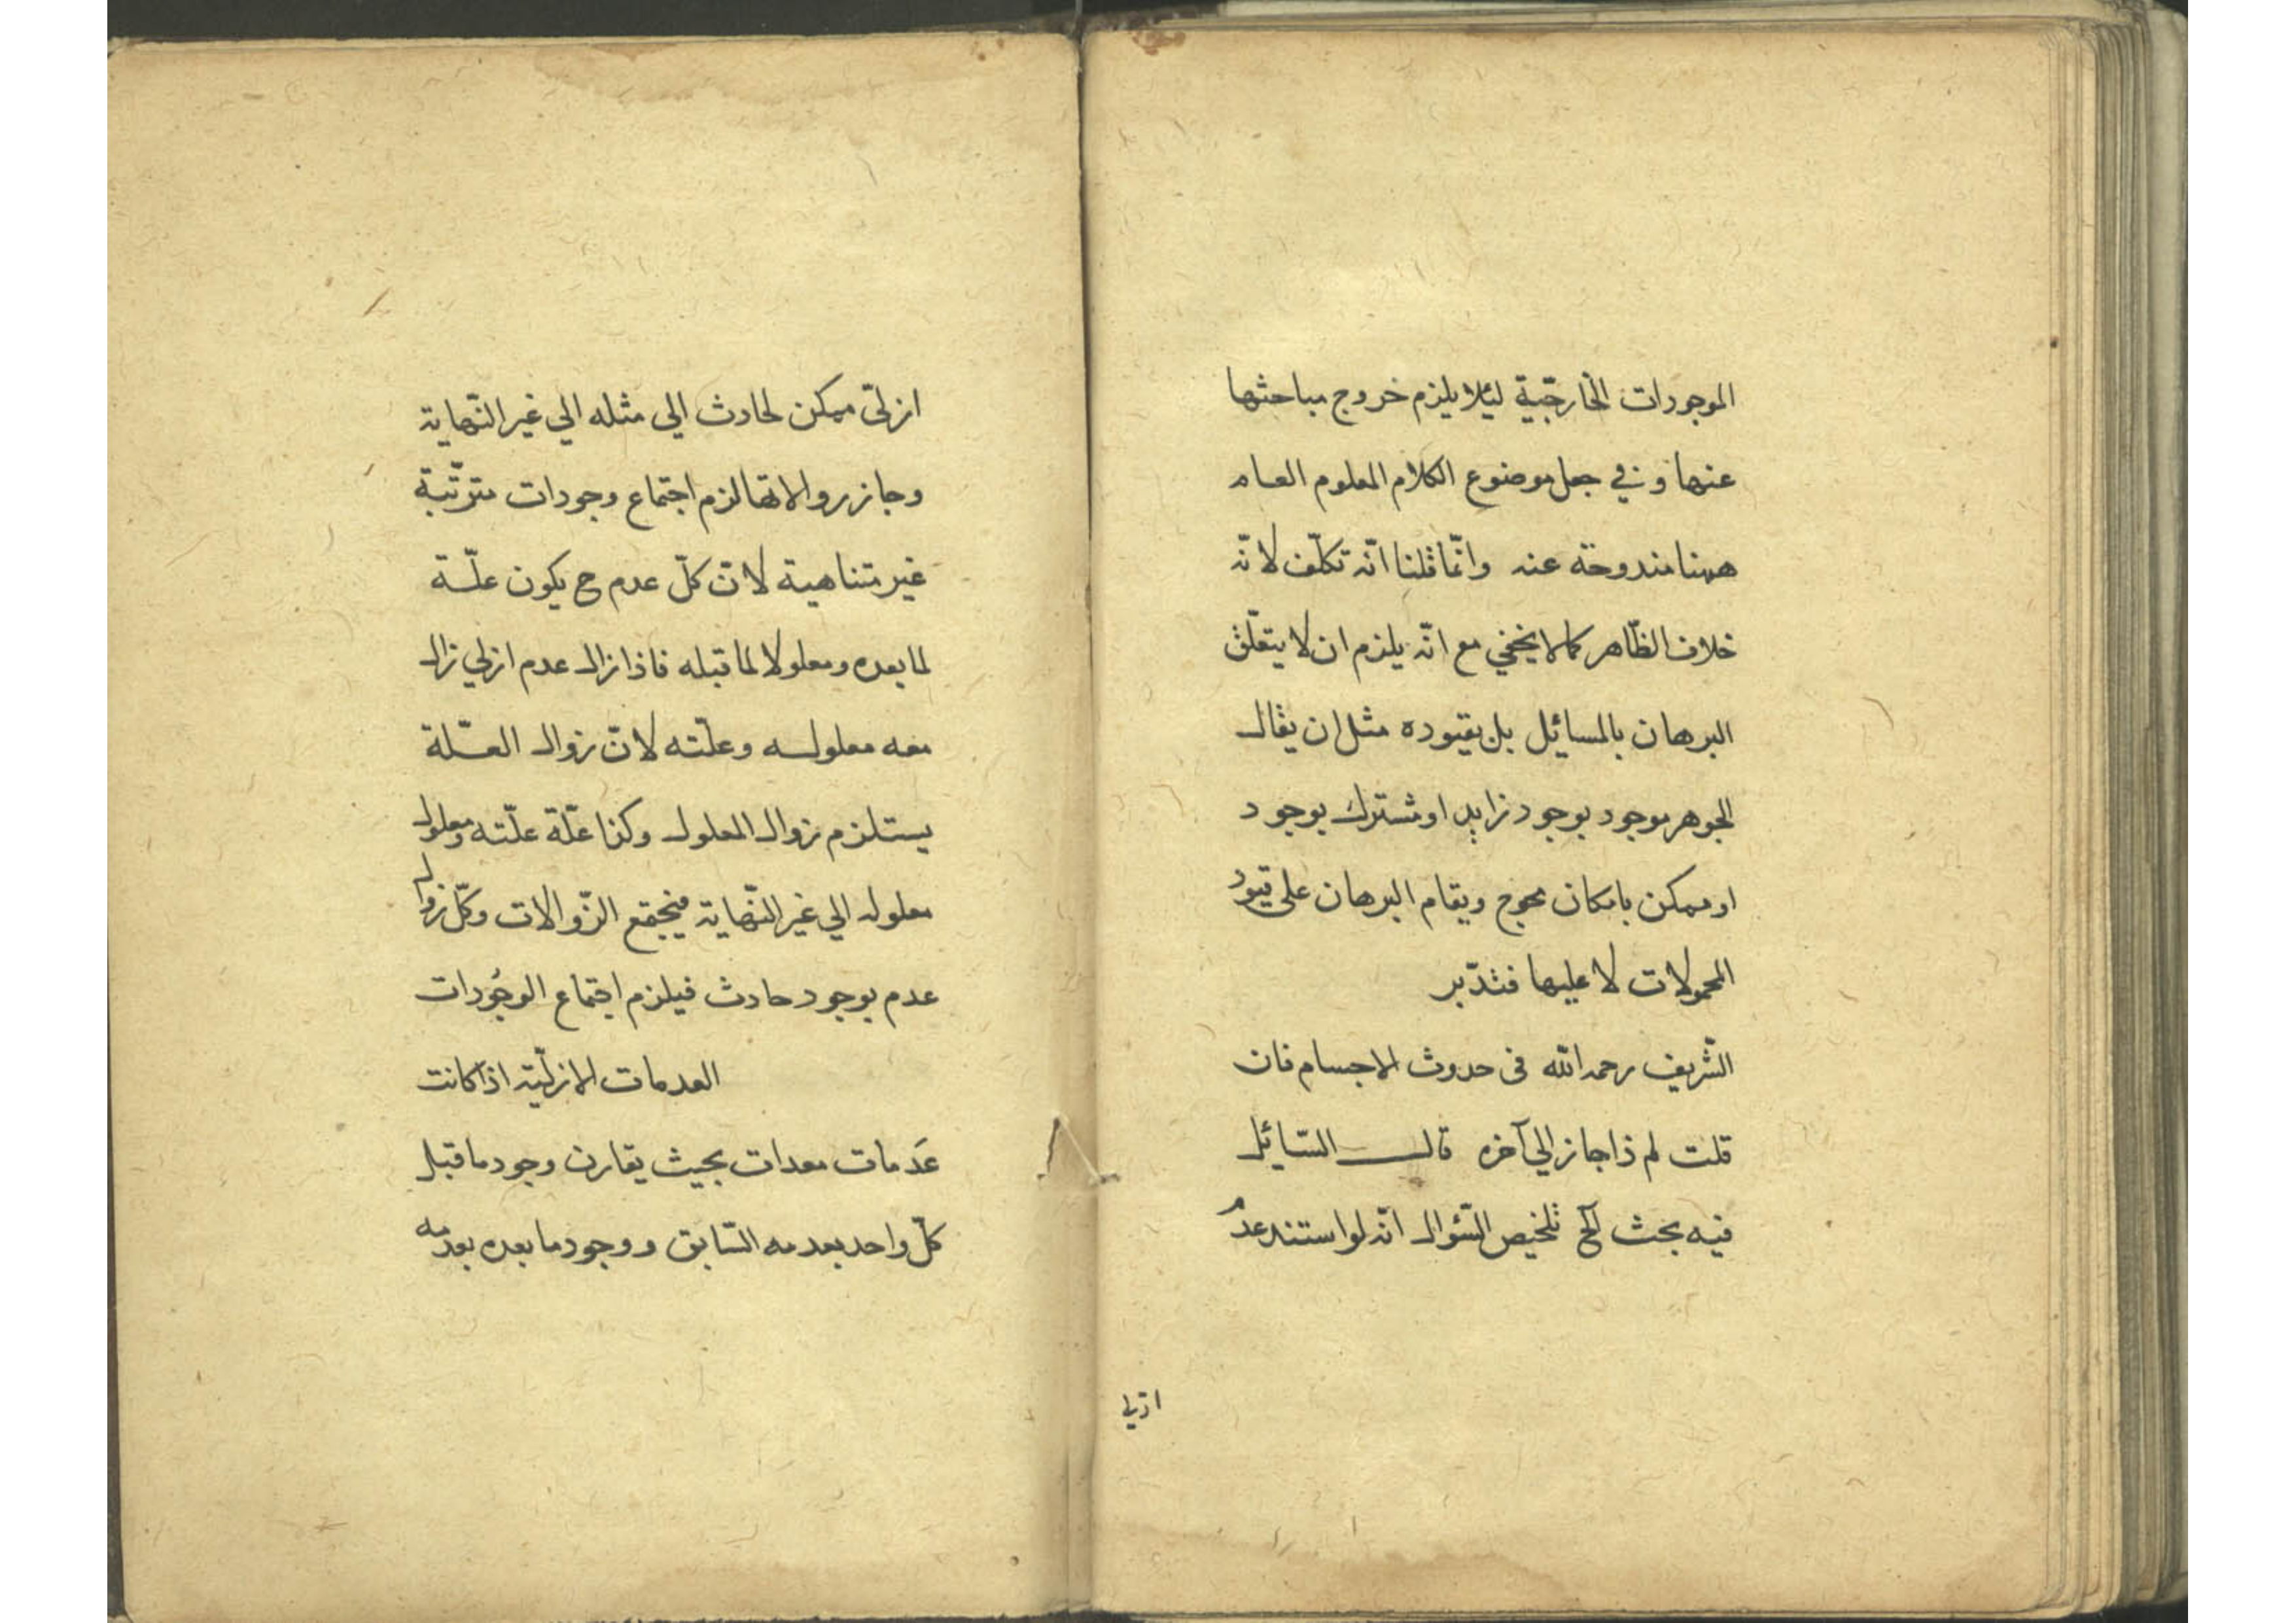 الموجودات الخارجّية لئلا يلزم خروج مباحثها
عنها و في جعل موضوع الكلام المعلوم العام
ههنا مندوحة عنه وانّما قلنا انّه تكلّف لانّه
خلاف الظّاهر كما لا يخفي مع انّه يلزم ان لا يتعلّق
البرهان بالمسائٔل بل بقيوده مثل ان يقال
الجوهر موجود بوجود زايد او مشترك بوجود
او ممكن بامكان محوج ويقام البرهان على قيود
المحمولات لا عليها فتدّبر
الشّريف رحمه اللّه فى حدوث الاجسام فان
قلت لم ذا جاز الي آخره قال السّائٔل
فيه بحث آلخ تلخيص السّؤال انّه لو استند عدم
ازلي
ازلىّ ممكن لحادث الي مثله الي غير النّهاية
وجاز زوالاتها لزم اجتماع وجودات مترتّبة
غير متناهية لانّ كلّ عدم ح يكون علّة
لما بعده ومعلولا لما قبله فاذا زال عدم ازلي زال
معه معلوله وعلّته لانّ زوال العّلة
يستلزم زوال المعلول وكذا علّة علّته ومعلول
معلوله الي غير النّهاية فيجتمع الزّوالات وكلّ زوال
عدم بوجود حادث فيلزم اجتماع الوجُودات
العدمات الازليّة اذا كانت
عَدمات معدات بحيث يقارن وجود ما قبل
كلّ واحد بعدمه السّابق ووجود ما بعده بعدمه